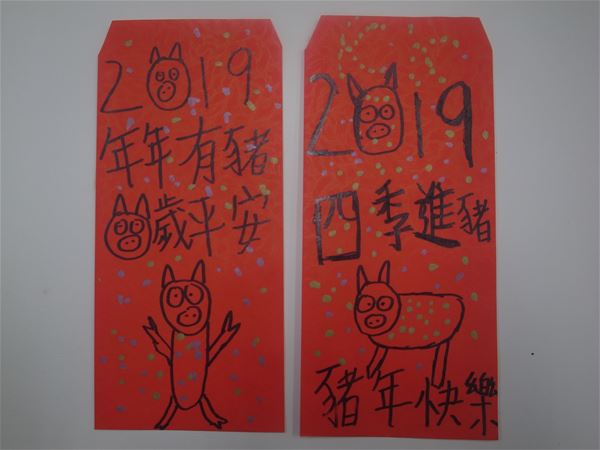 2019
年年有豬
歲平安
2019
四季進豬
豬年快樂